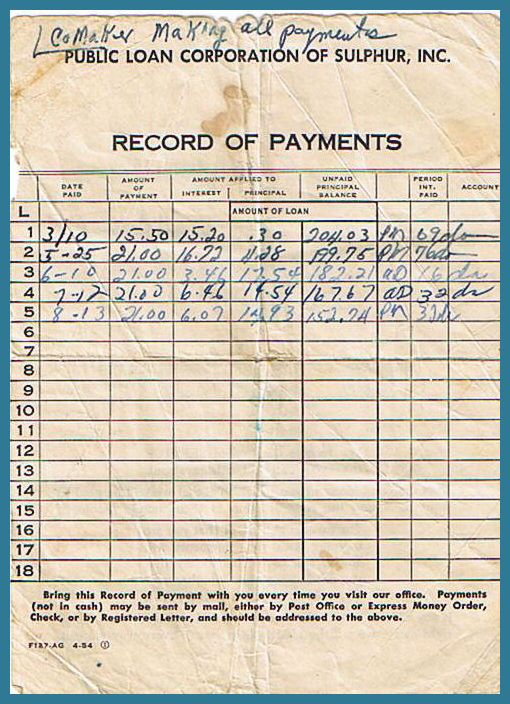 CoMaker Making all payments
PUBLIC LOAN CORPORATION OF SULPHUR, INC.
RECORD OF PAYMENTS
DATE PAID AMOUNT OF PAYMENT AMOUNT APPLIED TO INTEREST PRINCIPAL UNPAID PRINCIPAL BALANCE PERIOD INT. PAID ACCOUNT
L AMOUNT OF LOAN
1 3/10 15.50 15.20 .30 204.03 PM 69da
2 5-25 21.00 16.72 4.28 199.75 PM 76da
3 6-10 21.00 3.46 17.54 182.21 aD 16 da
4 7-12 21.00 6.46 14.54 167.67 aD 32 da
5 8-13 21.00 6.07 14.93 152.74 PM 32da
6
7
8
9
10
11
12
13
14
15
16
17
18
Bring this Record of Payment with you every time you visit our office. Payments
(not in cash) may be sent by mail, either by Post Office or Express Money Order,
Check, or by Registered Letter, and should be addressed to the above.
F137-AG 4-54